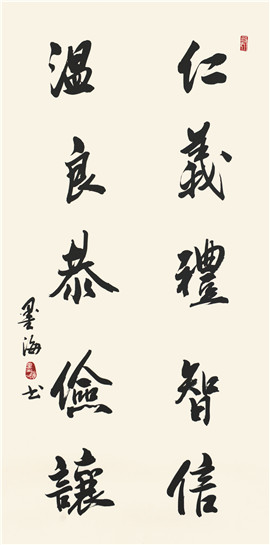 仁義禮智信
温良恭儉讓
墨海书